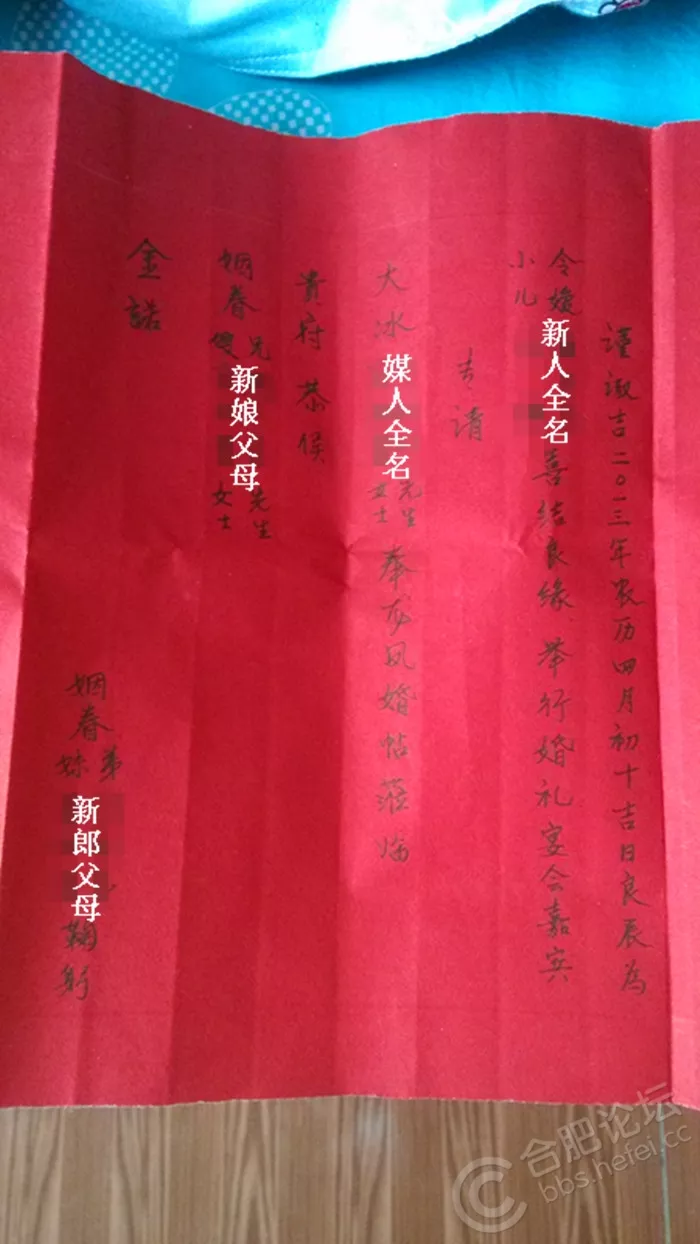 谨淑吉二〇一三年农历四月初十吉日良辰为
令媛
小儿
新人全名
喜结良缘 举行婚礼宴会嘉宾
专请
大冰
媒人全名
先生
女士
奉龙凤婚帖莅临
贵府恭候
姻眷
兄
新娘父母
先生
女士
金诺
姻眷
弟
妹
新郎父母
鞠躬
合肥论坛
bbs.hefei.cc